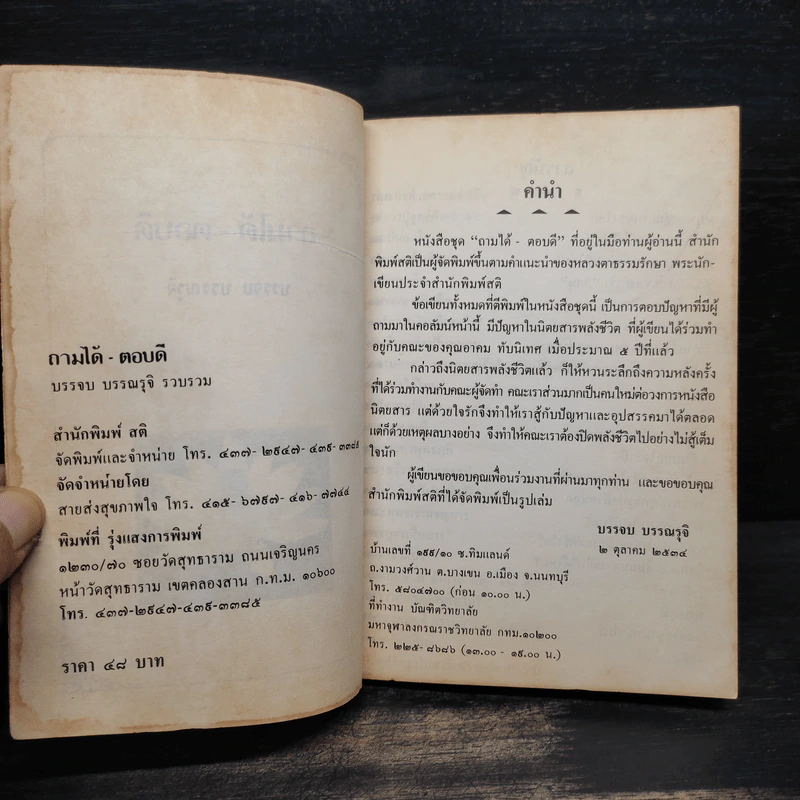 ถามได้ - ตอบดี
บรรจบ บรรณรุจิ รวบรวม
สำนักพิมพ์ สติ
จัดพิมพ์และจำหน่าย โทร. ๔๓๗-๒๙๔๗-๔๓๙-๓๓๘๕
จัดจำหน่ายโดย
สายส่งสุขภาพใจ โทร. ๔๑๕-๖๗๙๗-๔๑๖-๗๗๔๔
พิมพ์ที่ รุ่งแสงการพิมพ์
๑๒๓๐/๗๐ ซอยวัดสุทธาราม ถนนเจริญนคร
หน้าวัดสุทธาราม เขตคลองสาน ก.ท.ม. ๑๐๖๐๐
โทร. ๔๓๗-๒๙๔๗-๔๓๙-๓๓๘๕
ราคา ๔๘ บาท
คำนำ
หนังสือชุด “ถามได้ - ตอบดี” ที่อยู่ในมือท่านผู้อ่านนี้ สำนัก
พิมพ์สติเป็นผู้จัดพิมพ์ขึ้นตามคำแนะนำของหลวงตาธรรมรักษา พระนัก-
เขียนประจำสำนักพิมพ์สติ
ข้อเขียนทั้งหมดที่ตีพิมพ์ในหนังสือชุดนี้ เป็นการตอบปัญหาที่มีผู้
ถามมาในคอลัมน์หน้านี้ มีปัญหาในนิตยสารพลังชีวิต ที่ผู้เขียนได้ร่วมทำ
อยู่กับคณะของคุณอาคม ทับนิเทศ เมื่อประมาณ ๕ ปีที่แล้ว
กล่าวถึงนิตยสารพลังชีวิตแล้ว ก็ให้หวนระลึกถึงความหลังครั้ง
ที่ได้ร่วมทำงานกับคณะผู้จัดทำ คณะเราส่วนมากเป็นคนใหม่ต่อวงการหนังสือ
นิตยสาร แต่ด้วยใจรักจึงทำให้เราสู้กับปัญหาและอุปสรรคมาได้ตลอด
แต่ก็ด้วยเหตุผลบางอย่าง จึงทำให้คณะเราต้องปิดพลังชีวิตไปอย่างไม่สู้เต็ม
ใจนัก
ผู้เขียนขอขอบคุณเพื่อนร่วมงานที่ผ่านมาทุกท่าน และขอขอบคุณ
สำนักพิมพ์สติที่ได้จัดพิมพ์เป็นรูปเล่ม
บรรจบ บรรณรุจิ
๒ ตุลาคม ๒๕๓๔
บ้านเลขที่ ๑๙๙/๑๐ ซ.ทิมแลนด์
ถ.งามวงศ์วาน ต.บางเขน อ.เมือง จ.นนทบุรี
โทร. ๕๘๐๔๗๐๐ (ก่อน ๑๐.๐๐ น.)
ที่ทำงาน บัณฑิตวิทยาลัย
มหาจุฬาลงกรณราชวิทยาลัย กทม.๑๐๒๐๐
โทร. ๒๒๕-๘๖๘๖ (๑๓.๐๐ - ๑๙.๐๐ น.)